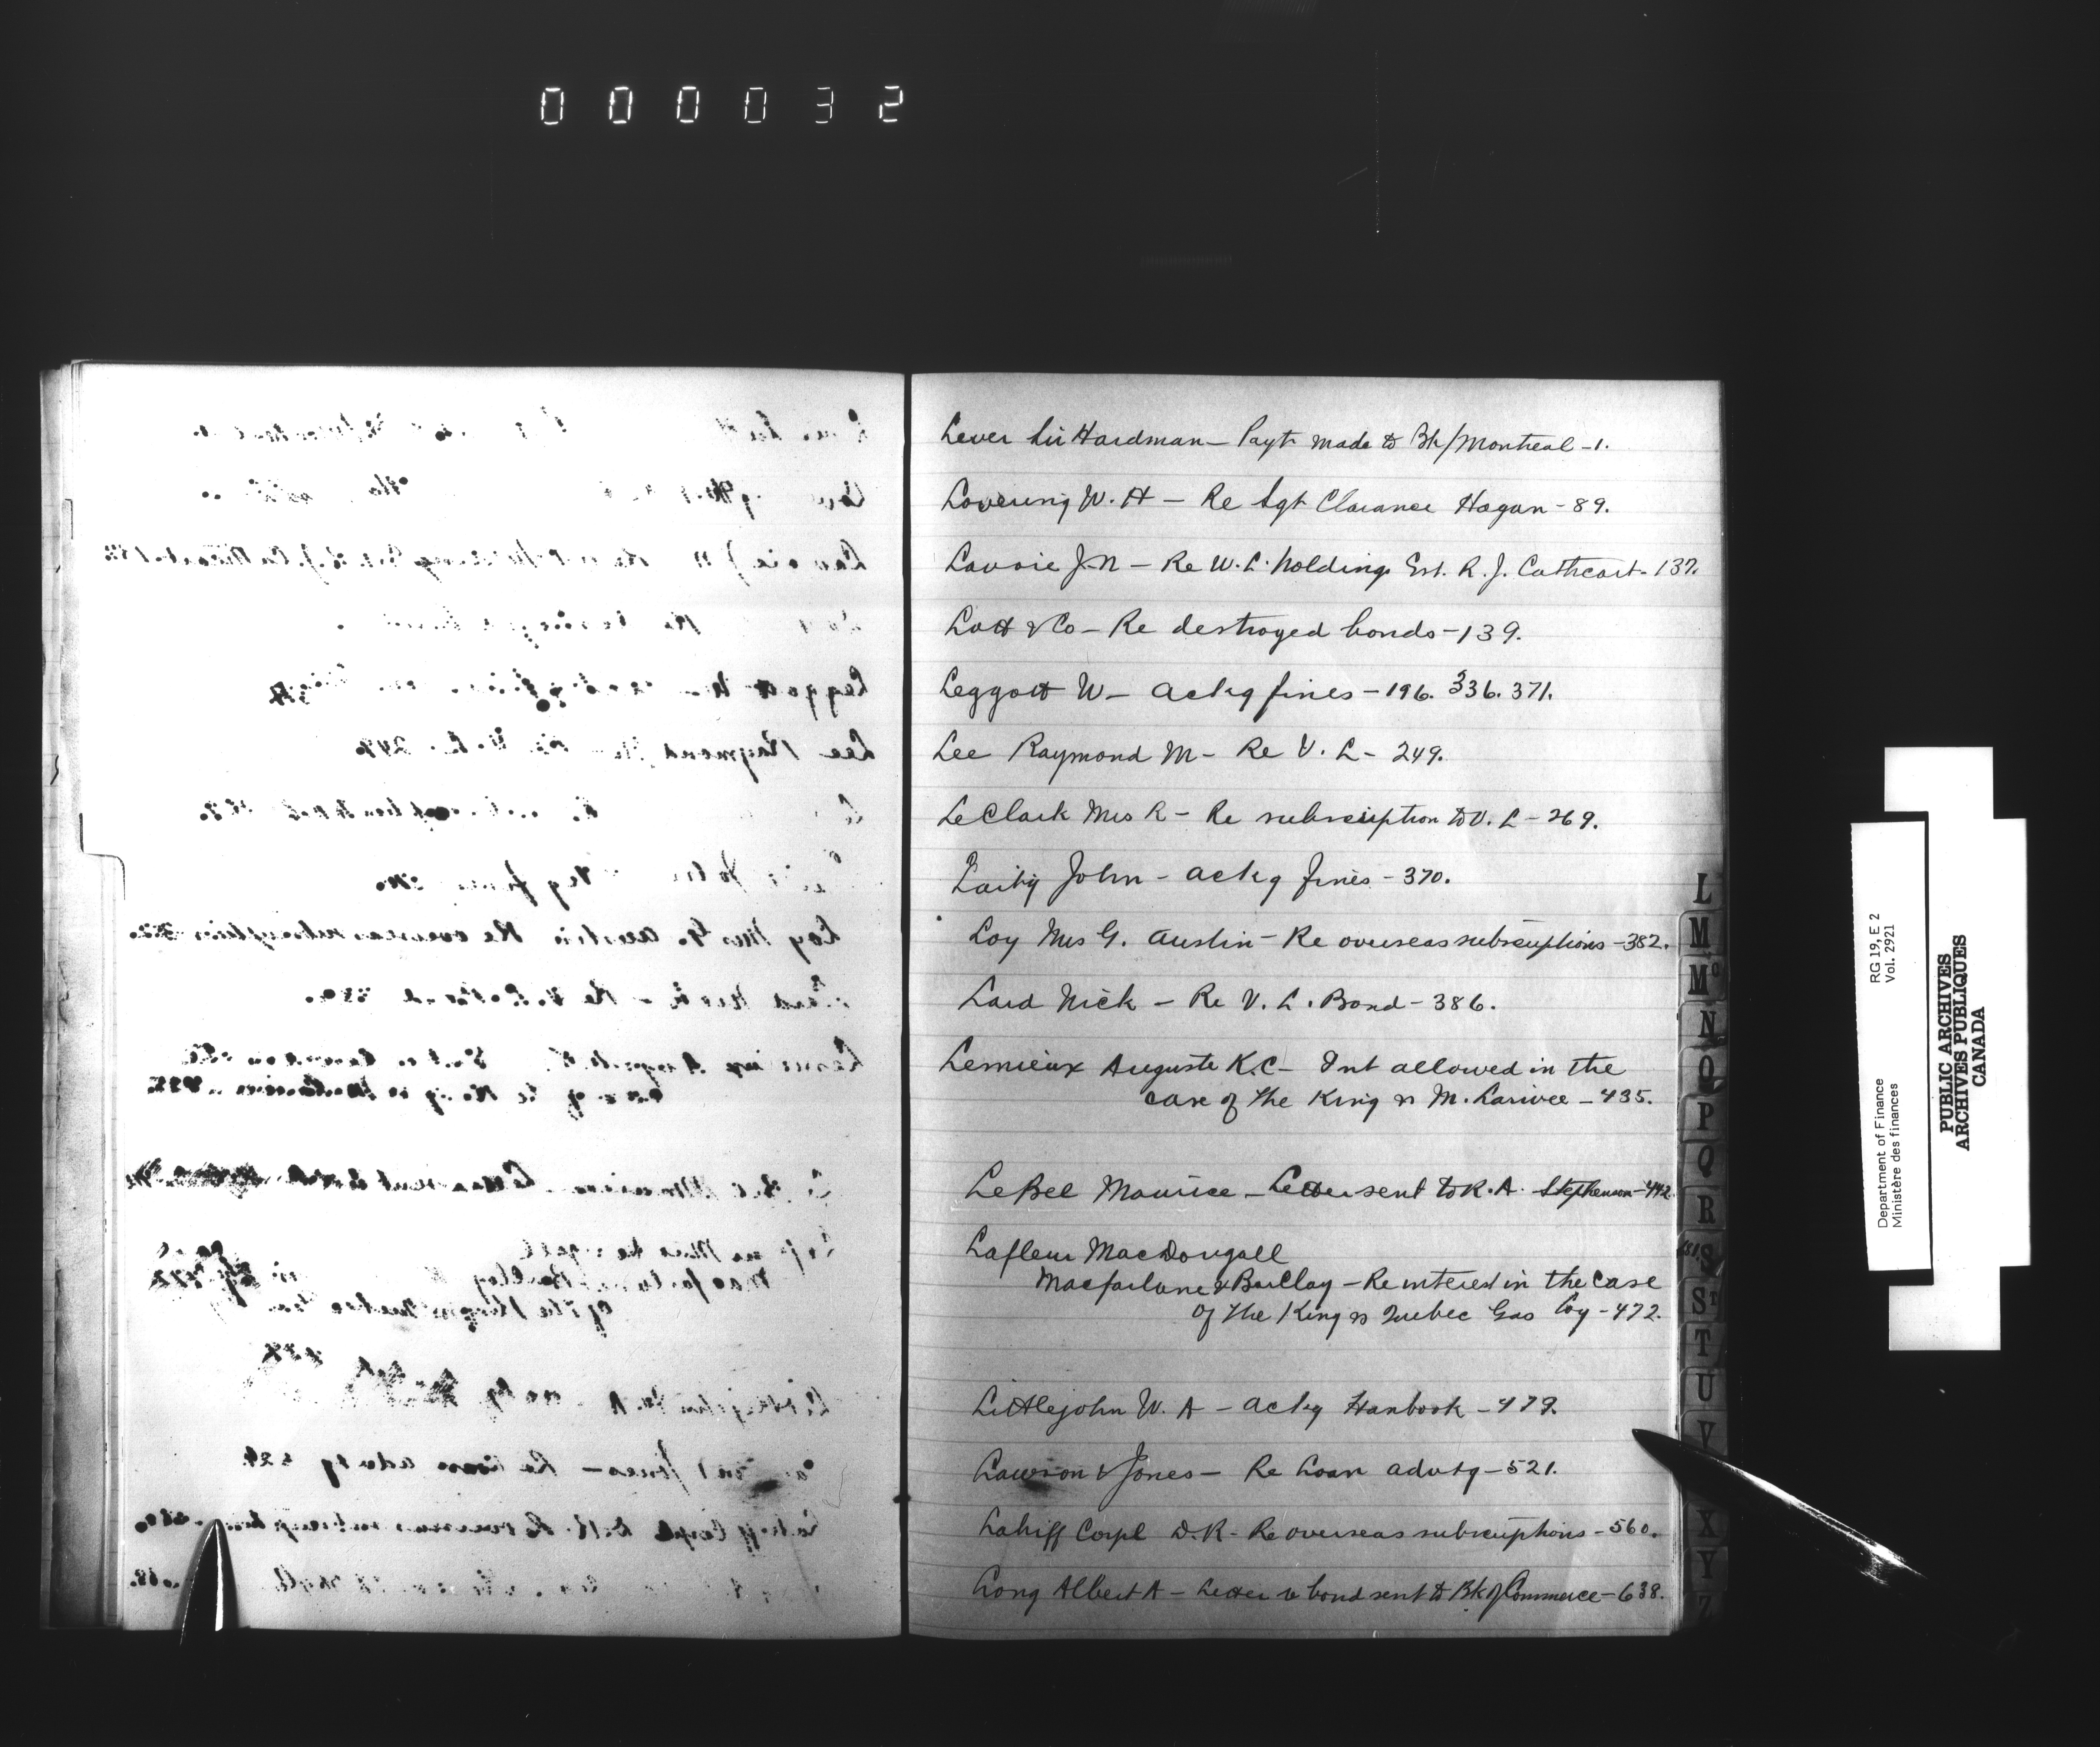 000032
Lever Sir Hardman - Payt made to Bk/Montreal - 1.
Lovering W. H - Re Sgt Clarance Hogan - 89.
Lavoie J. N - Re W. L. holdings Est. R. J. Cathcart - 137.
Lott & Co - Re destroyed bonds - 139.
Leggott W - ackg fines - 196. 336. 371.
Lee Raymond M - Re V. L - 249.
LeClark Mrs R - Re subscription to V. L - 269.
John - ackg fines - 370.
Loy Mrs G. Austin - Re overseas subscriptions - 382.
Laid Nick - Re V. L. Bond - 386.
Lemieux Auguste K.C - Int allowed in the
case of the King vs M. Larivee - 435.
LeBel Maurice - Letter sent to R. A. Stephenson - 442.
Lafleur MacDougall
Macfarlane & Barclay - Re interest in the case
of the King vs Quebec Gas Coy - 472.
Littlejohn W. A - ackg Hanbook - 479.
Lawson & Jones - Re Loan advtg - 521.
Lahiff Corpl D. R - Re overseas subscriptions - 560.
Long Albert A - Letter & bond sent to Bk of Commerce - 638.
L
M
Mc
N
O
P
Q
R
S
St
T
U
V
X
Y
Z
Department of Finance RG 19, E 2
Ministère des finances Vol. 2921
PUBLIC ARCHIVES
ARCHIVES PUBLIQUES
CANADA